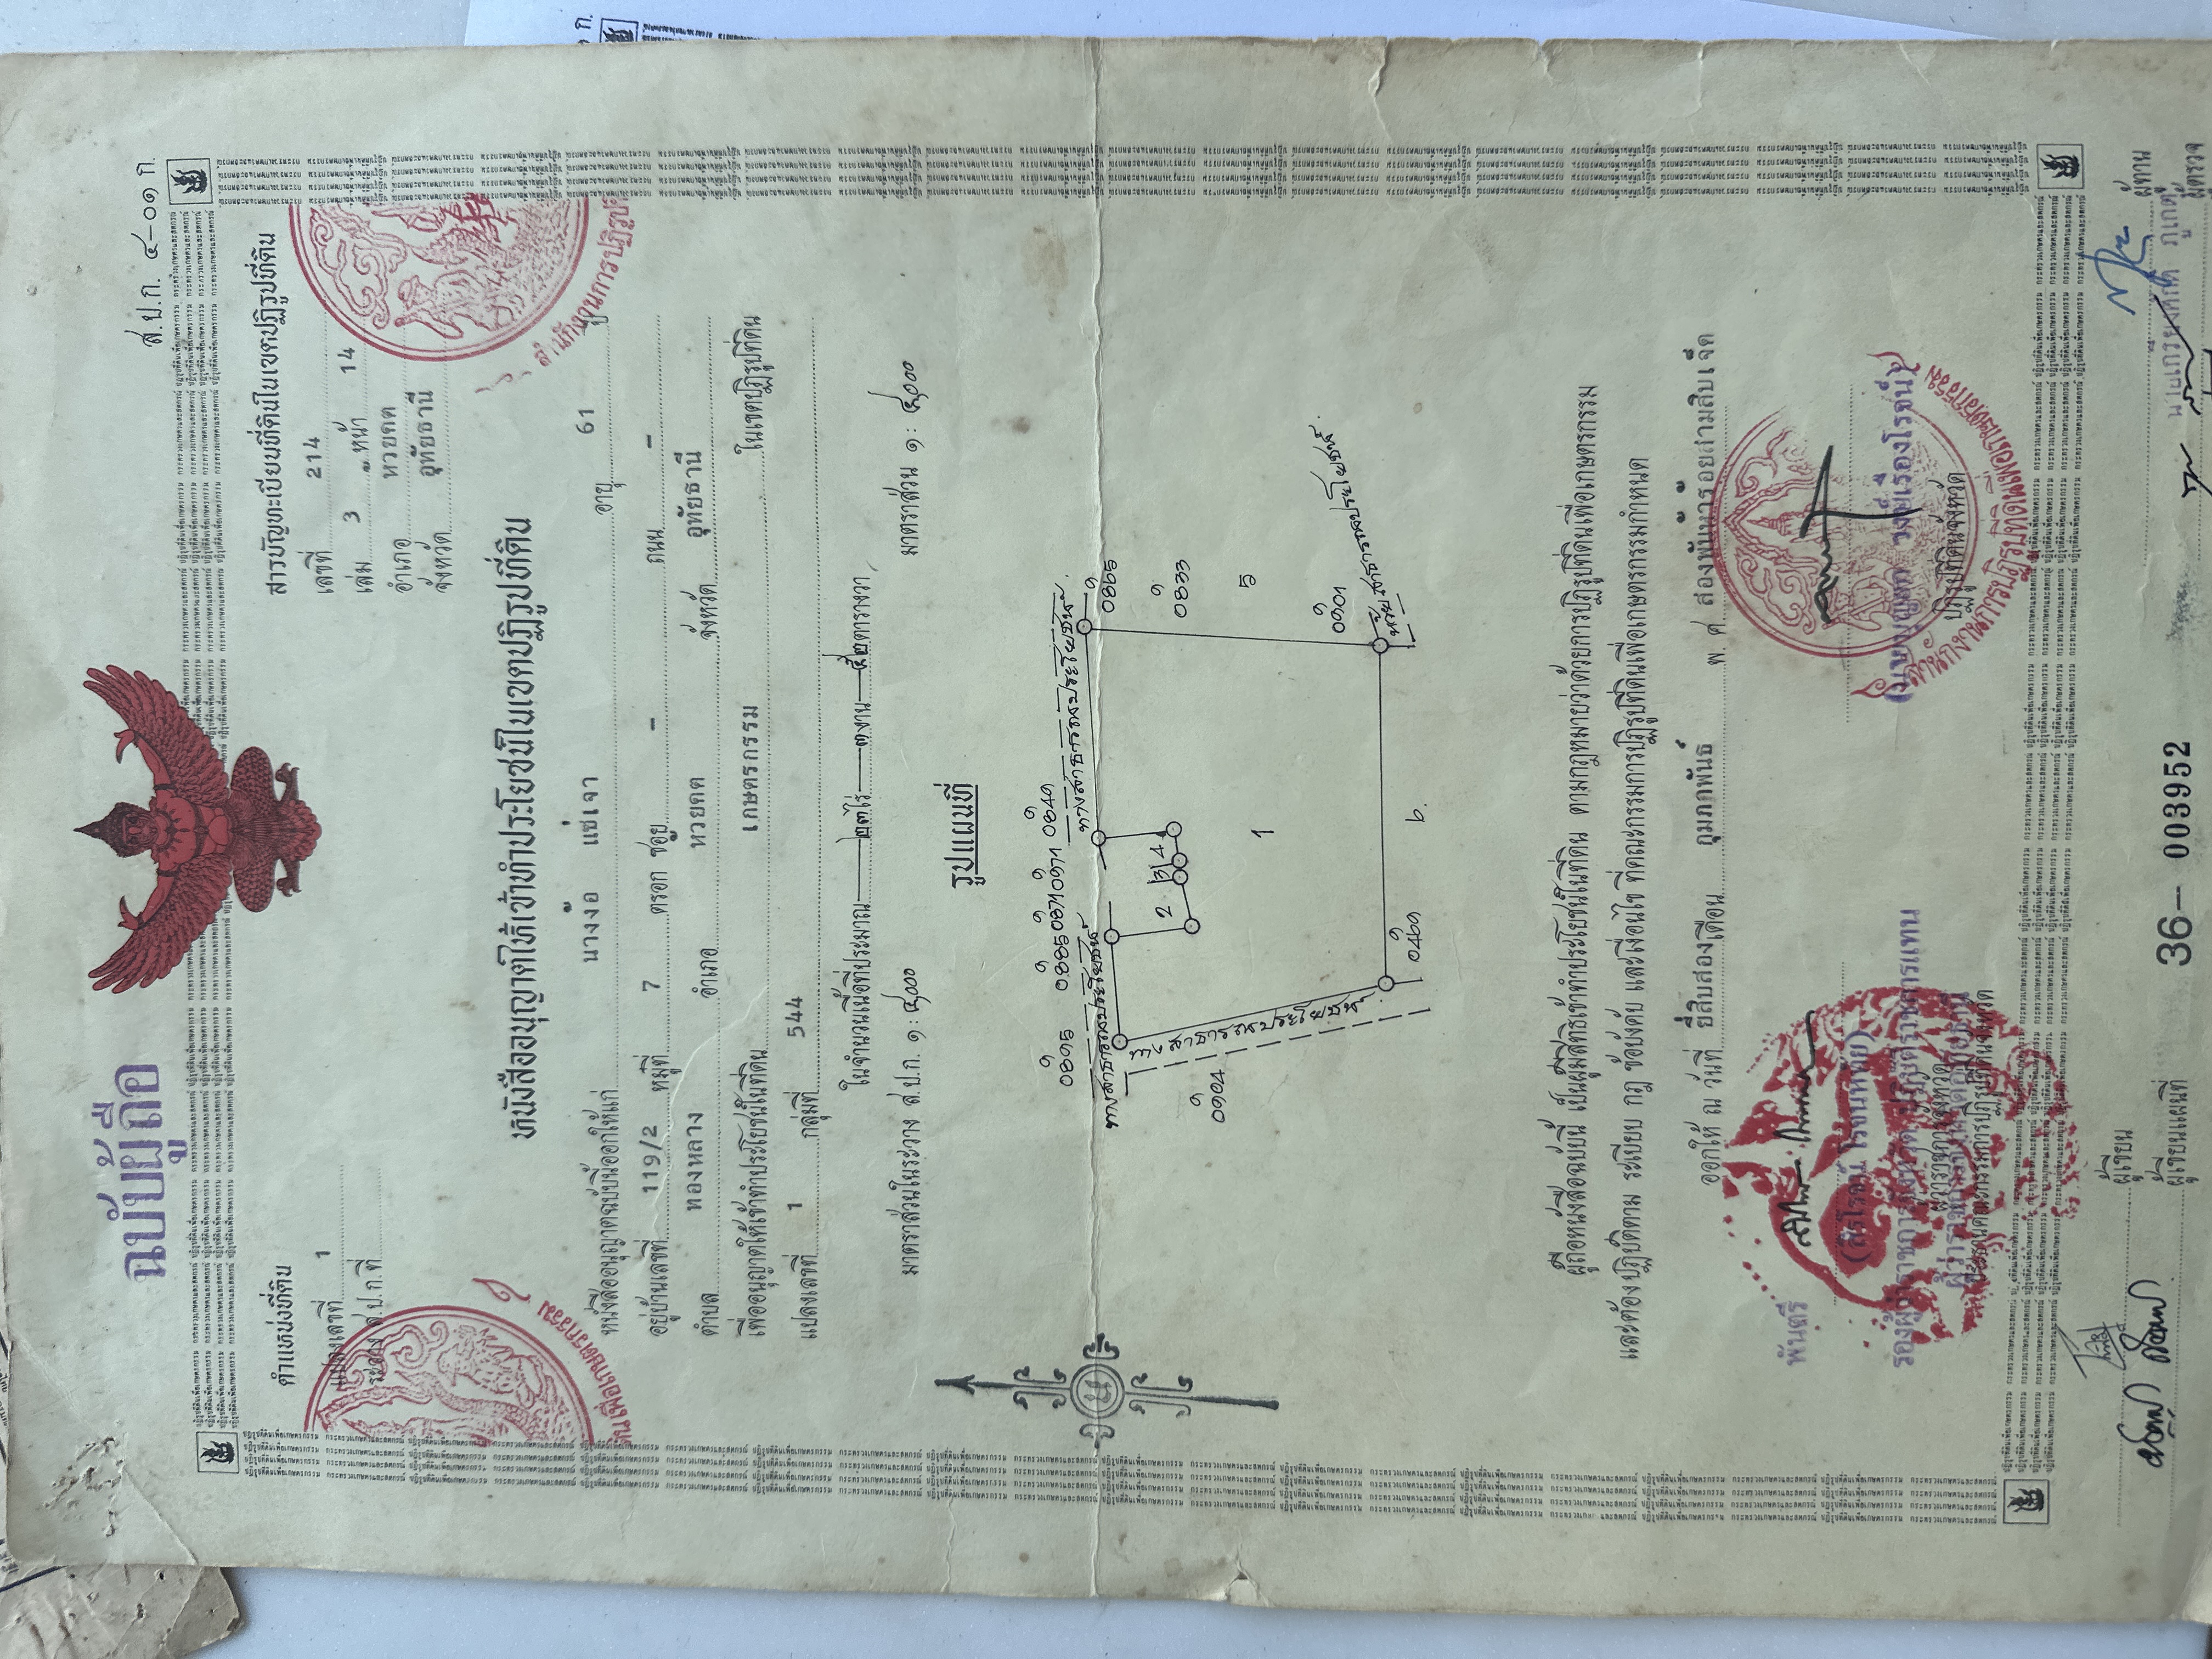 ฉบับผู้ถือ
ส.ป.ก. ๔-๐๑ ก.
ตำแหน่งที่ดิน
แปลงเลขที่ 1
ระวาง ส.ป.ก.ที่
สารบัญทะเบียนที่ดินในเขตปฏิรูปที่ดิน
เลขที่ 214
เล่ม 3 หน้า 14
อำเภอ ห้วยคต
จังหวัด อุทัยธานี
หนังสืออนุญาตให้เข้าทำประโยชน์ในเขตปฏิรูปที่ดิน
หนังสืออนุญาตฉบับนี้ออกให้แก่ นางง้อ แซ่เจา อายุ 61 ปี
อยู่บ้านเลขที่ 119/2 หมู่ที่ 7 ตรอก ซอย - ถนน -
ตำบล ทองหลาง อำเภอ ห้วยคต จังหวัด อุทัยธานี
เพื่ออนุญาตให้เข้าทำประโยชน์ในที่ดิน เกษตรกรรม ในเขตปฏิรูปที่ดิน
แปลงเลขที่ 1 กลุ่มที่ 544
ในจำนวนเนื้อที่ประมาณ ๒๓ ไร่ ๓ งาน ๕๒ ตารางวา
มาตราส่วนในระวาง ส.ป.ก. ๑ : ๔,๐๐๐
มาตราส่วน ๑ : ๔,๐๐๐
รูปแผนที่
น
ทางสาธารณประโยชน์
ทางสาธารณประโยชน์
2 3 4
ทางสาธารณประโยชน์
5
1
ห้วยสาธารณประโยชน์
6
ผู้ถือหนังสือฉบับนี้ เป็นผู้มีสิทธิเข้าทำประโยชน์ในที่ดิน ตามกฎหมายว่าด้วยการปฏิรูปที่ดินเพื่อเกษตรกรรม
และต้องปฏิบัติตาม ระเบียบ กฎ ข้อบังคับ และเงื่อนไข ที่คณะกรรมการปฏิรูปที่ดินเพื่อเกษตรกรรมกำหนด
ออกให้ ณ วันที่ ยี่สิบสอง เดือน กุมภาพันธ์ พ.ศ สองพันห้าร้อยสามสิบเจ็ด
พันตรี
(สิรโรจน์ โรจนหทัย)
รองผู้ว่าราชการจังหวัด ปฏิบัติราชการแทน
ผู้ว่าราชการจังหวัดอุทัยธานี
ผู้ว่าราชการจังหวัด
ประธานคณะกรรมการปฏิรูปที่ดินจังหวัด
วงษ์เรืองโรจน์)
ปฏิรูปที่ดินจังหวัด
สำนักงานการปฏิรูปที่ดินเพื่อเกษตรกรรม
ผู้เขียน
ผู้เขียนแผนที่
36- 003952
ผู้ทาน
นายเกรียงศักดิ์ ภูเกต
ผู้ตรวจ